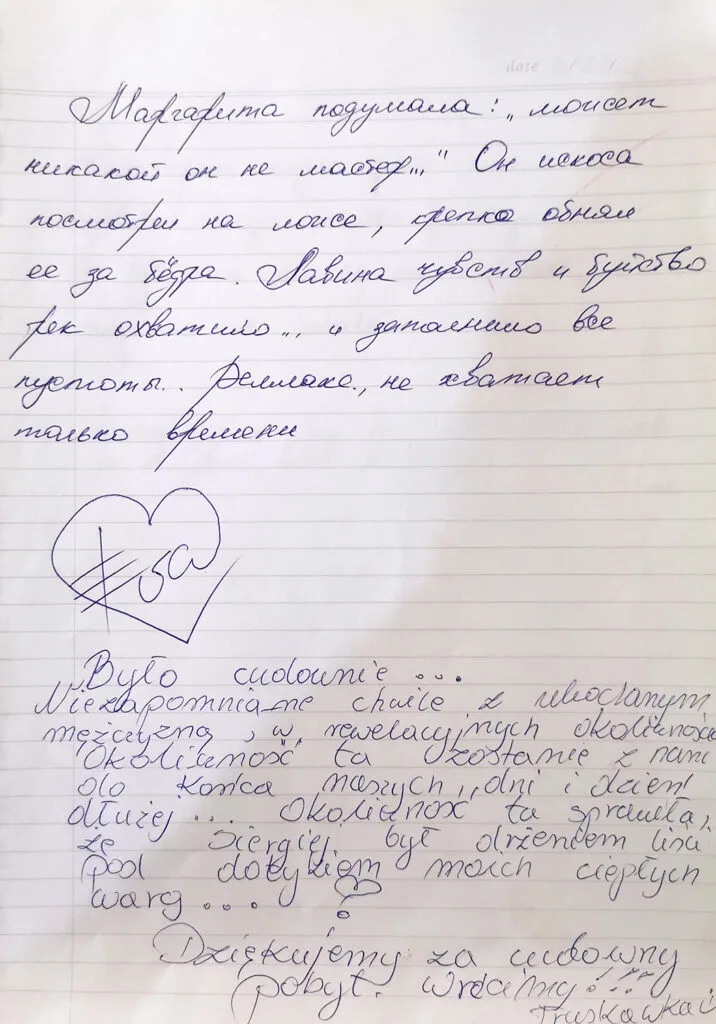 date / /
Маргарита подумала: „может
никакой он не мастер..." Он искоса
посмотрел на ложе, крепко обнял
ее за бёдра. Лавина чувств и буйство
рек охватило... и заполнило все
пустоты.. Релакс., не хватает
только времени
Было cudownie ...
Niezapomniane chwile z ukochanym
mężczyzną, w rewelacyjnych okolicznośc
"Okoliczność" ta zostanie z nami
do końca naszych „dni i dzień
dłużej ... Okoliczność ta sprawiła,
że Siergiej był drżeniem liści
pod dotykiem moich ciepłych
warg ...
Dziękujemy za cudowny
pobyt. Wrócimy!!!
Truskawka